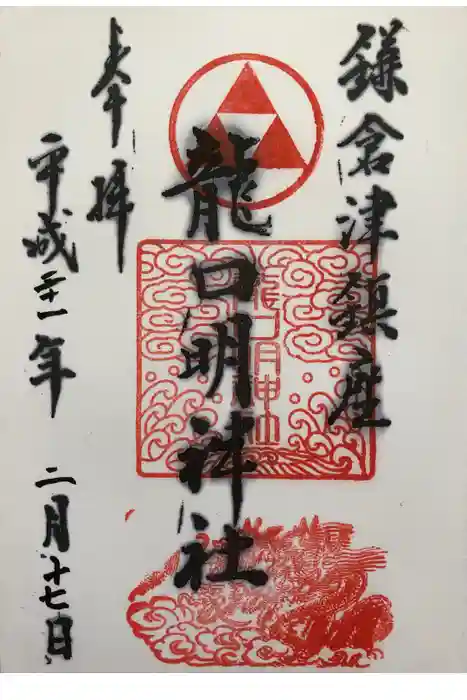 鎌倉津鎮座
龍口明神社
龍口明神社
奉拝
平成三十一年 二月十七日